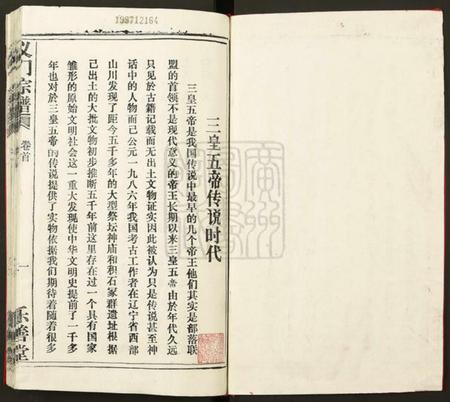 198712164
三皇五帝传说时代
三皇五帝是我国传说中最早的几个帝王他们其实是部落联
盟的首领不是现代意义的帝王长期以来三皇五帝由於年代久远
只见於古籍记载而无出土文物证实因此被认为只是传说甚至神
话中的人物而已公元一九八六年我国考古工作者在辽宁省西部
山川发现了距今五千多年的大型祭坛神庙和积石冢群遗址根据
已出土的大批文物初步推断五千年前这里存在过一个具有国家
雏形的原始文明社会这一重大发现使中华文明史提前了一千多
年也对於三皇五帝的传说提供了实物依据我们期待着随着很多
宗譜
卷首
一
乐善堂